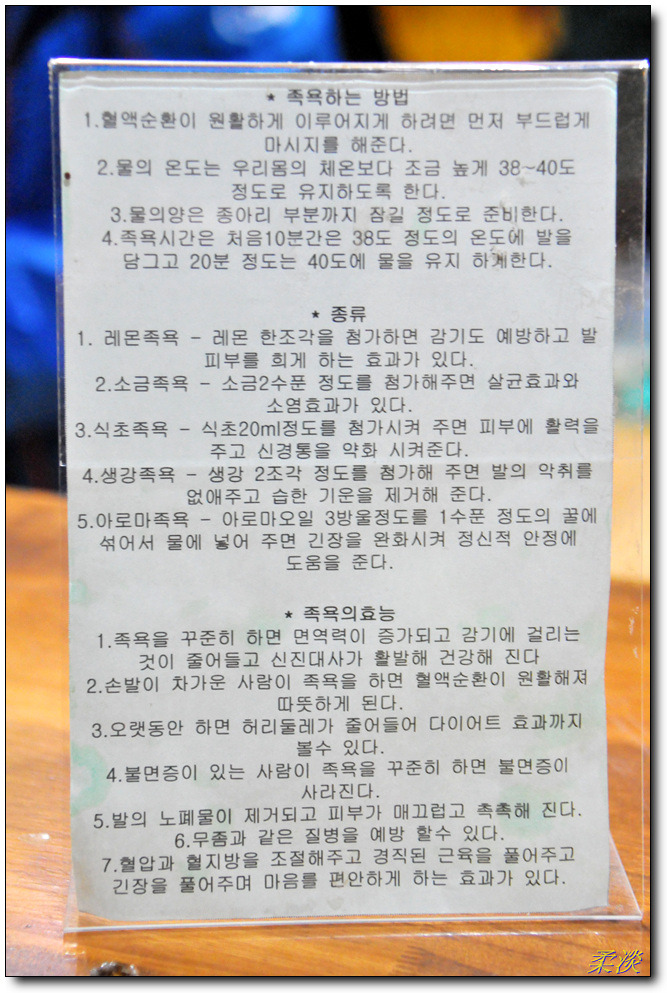 * 족욕하는 방법
1.혈액순환이 원활하게 이루어지게 하려면 먼저 부드럽게
마시지를 해준다.
2.물의 온도는 우리몸의 체온보다 조금 높게 38~40도
정도로 유지하도록 한다.
3.물의양은 종아리 부분까지 잠길 정도로 준비한다.
4.족욕시간은 처음10분간은 38도 정도의 온도에 발을
담그고 20분 정도는 40도에 물을 유지 하게한다.
* 종류
1. 레몬족욕 - 레몬 한조각을 첨가하면 감기도 예방하고 발
피부를 희게 하는 효과가 있다.
2.소금족욕 - 소금2수푼 정도를 첨가해주면 살균효과와
소염효과가 있다.
3.식초족욕 - 식초20ml정도를 첨가시켜 주면 피부에 활력을
주고 신경통을 약화 시켜준다.
4.생강족욕 - 생강 2조각 정도를 첨가해 주면 발의 악취를
없애주고 습한 기운을 제거해 준다.
5.아로마족욕 - 아로마오일 3방울정도를 1수푼 정도의 꿀에
섞어서 물에 넣어 주면 긴장을 완화시켜 정신적 안정에
도움을 준다.
* 족욕의효능
1.족욕을 꾸준히 하면 면역력이 증가되고 감기에 걸리는
것이 줄어들고 신진대사가 활발해 건강해 진다
2.손발이 차가운 사람이 족욕을 하면 혈액순환이 원활해져
따뜻하게 된다.
3.오랫동안 하면 허리둘레가 줄어들어 다이어트 효과까지
볼수 있다.
4.불면증이 있는 사람이 족욕을 꾸준히 하면 불면증이
사라진다.
5.발의 노폐물이 제거되고 피부가 매끄럽고 촉촉해 진다.
6.무좀과 같은 질병을 예방 할수 있다.
7.혈압과 혈지방을 조절해주고 경직된 근육을 풀어주고
긴장을 풀어주며 마음를 편안하게 하는 효과가 있다.
柔淡